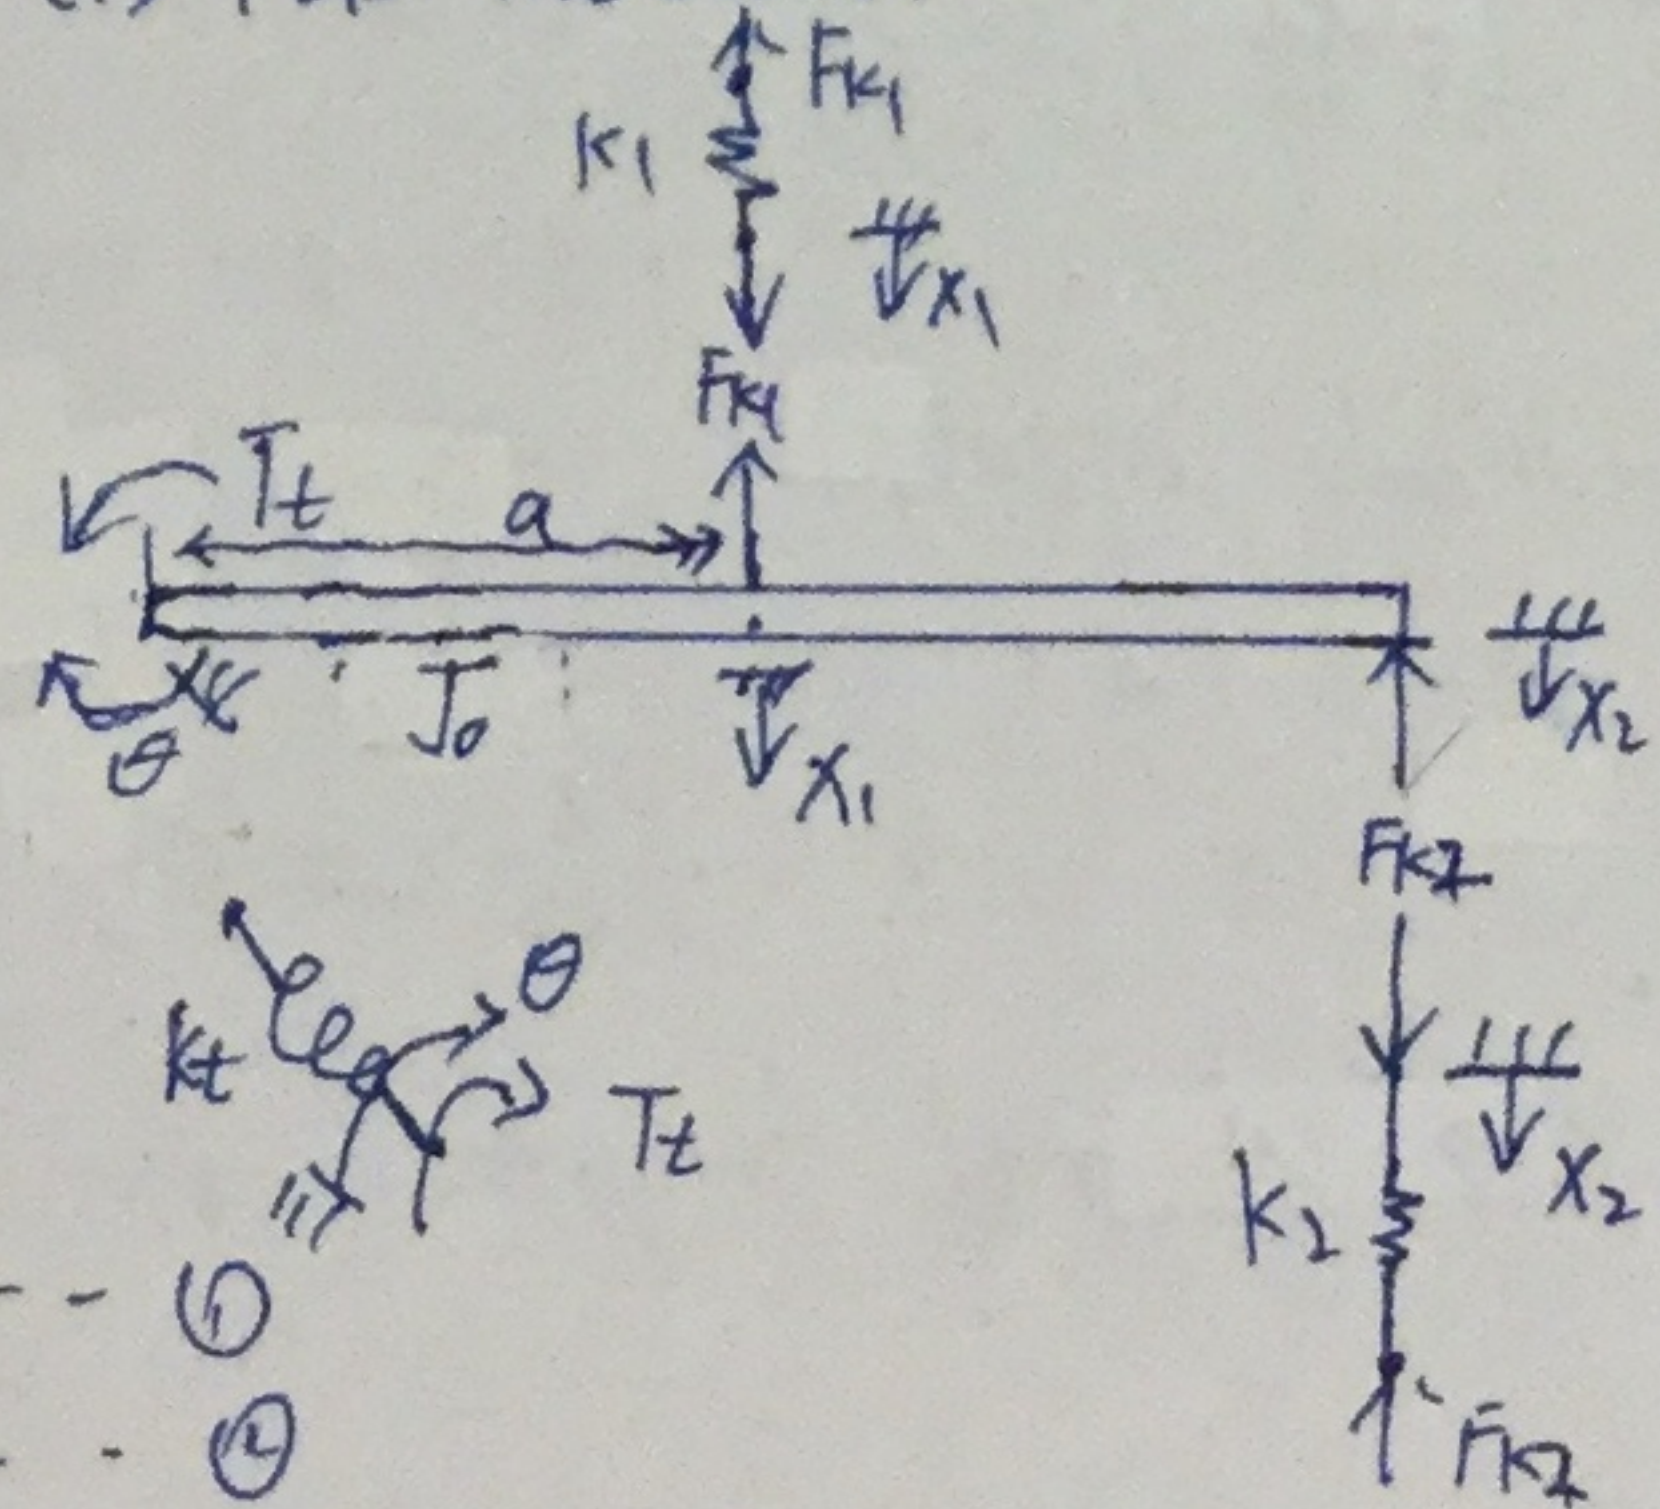 Fk1
k1
x1
Fk1
Tt
a
θ
J0
x1
x2
Fk2
θ
kt
Tt
x2
k2
①
②
Fk2